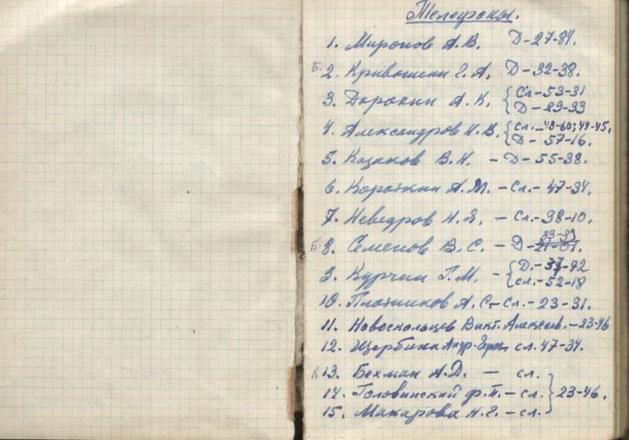 Телефоны.
1. Миронов А.В. Д-27-84.
2. Кривошеин Г.А. Д-32-38.
3. Дорохин А.К. {Сл.-53-31
Д-23-33
4. Александров Н.В. {Сл.-48-60; 49-45.
Д-57-16.
5. Казаков В.Н. - Д-55-38.
6. Короткин А.М. - Сл.- 47-34.
7. Неведров Н.Я. - Сл.-38-10.
33-33
8. Семенов В.С. - Д-21-01.
9. Курчин Г.М. - {Д.-37-72
Сл.-52-18
10. Плотников А.С - Сл.-23-31.
11. Новоскольцев Викт. Алексеев. - 23-46
12. Щербина сл. 47-34.
13. Бекман А.Д. - сл.
14. Головинский Ф.П. - сл. } 23-46.
15. Макарова Н.Г. - сл.